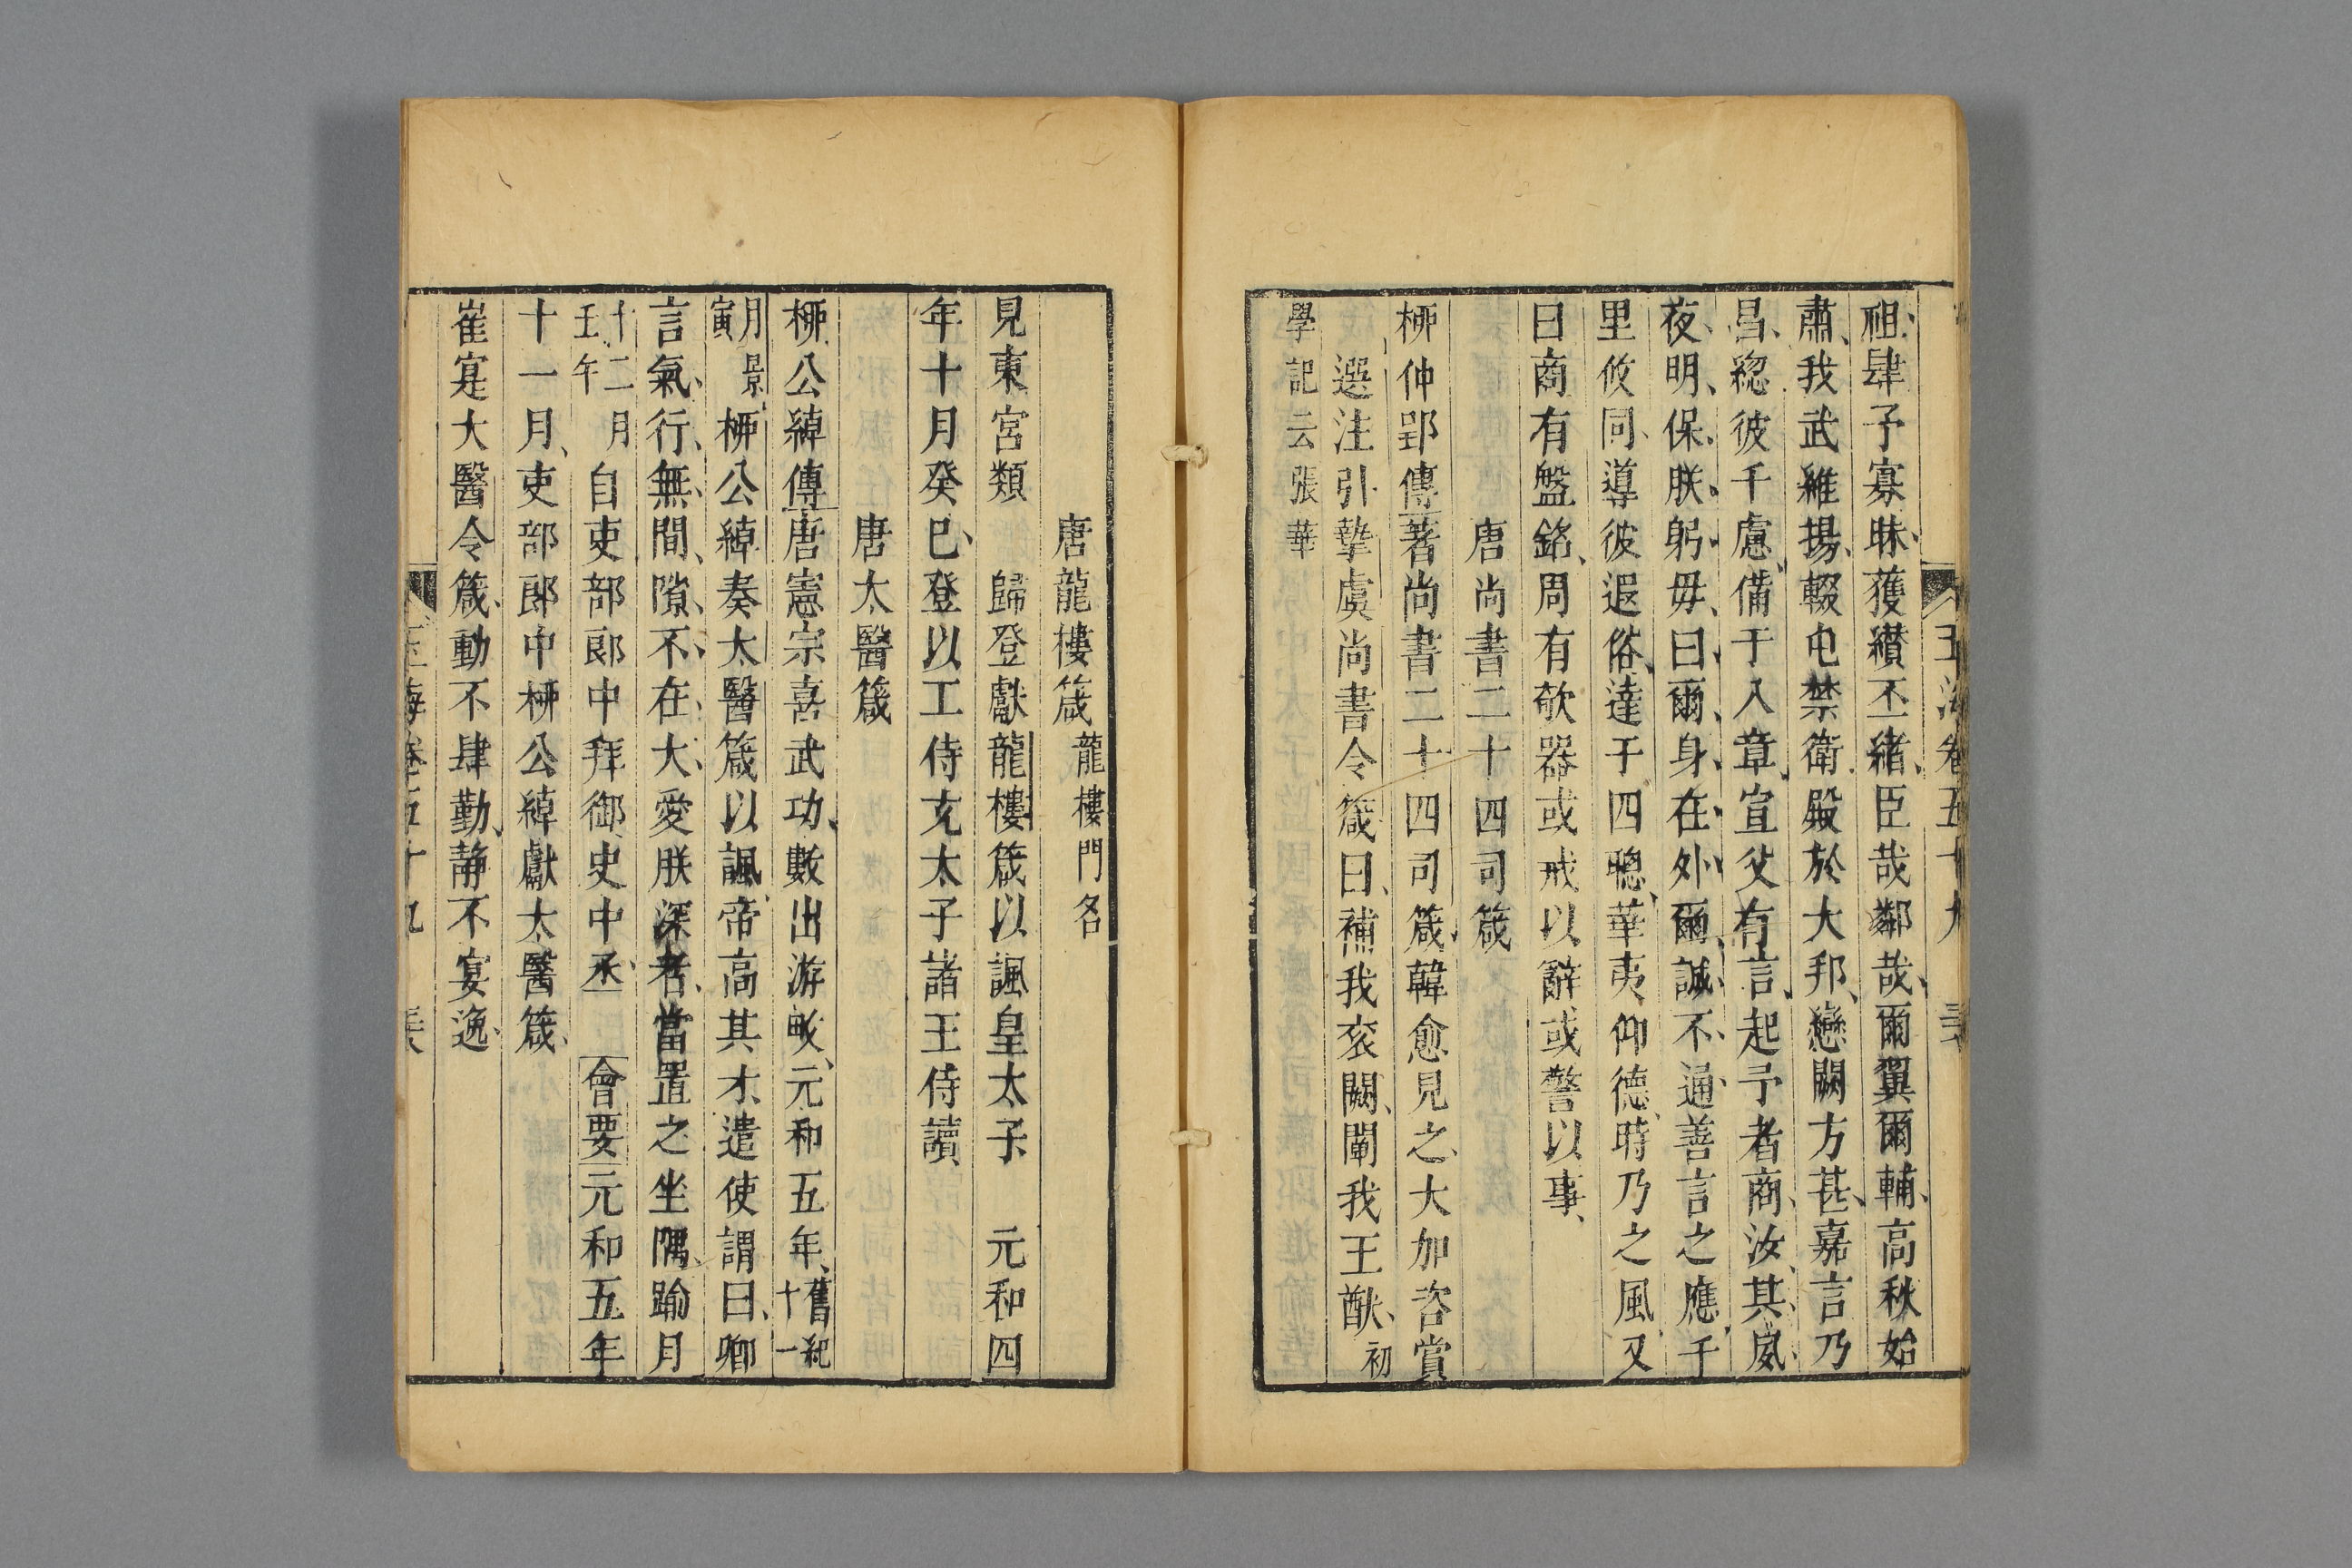 玉海卷五十九
祖肆予寡昧獲纘丕緒臣哉鄰哉爾翼爾輔高秋始
肅我武維揚輟屯禁衛殿於大邦戀闕方甚嘉言乃
昌緫彼千慮備于入章宣父有言起予者商汝其夙
夜明保朕躬毋曰爾身在外爾誠不通善言之應千
里攸同導彼遐俗達于四聰華夷仰德時乃之風又
曰商有盤銘周有欹器或戒以辭或警以事
唐尚書二十四司箴
桺仲郢傳著尚書二十四司箴韓愈見之大加咨賞
選注引摯虞尚書令箴曰補我衮闕闡我王猷初
學記云張華
唐龍樓箴龍樓門名
見東宮類 歸登獻龍樓箴以諷皇太子 元和四
年十月癸巳登以工侍充太子諸王侍讀
唐太醫箴
桺公綽傳唐憲宗喜武功數出游畋元和五年舊紀十一
月景寅桺公綽奏太醫箴以諷帝高其才遣使謂曰卿
言氣行無間隙不在大愛朕深者當置之坐隅踰月
十二月壬午自吏部郎中拜御史中丞 會要元和五年
十一月吏部郎中桺公綽獻太醫箴
崔寔大醫令箴動不肆勤静不宴逸
玉海卷五十九